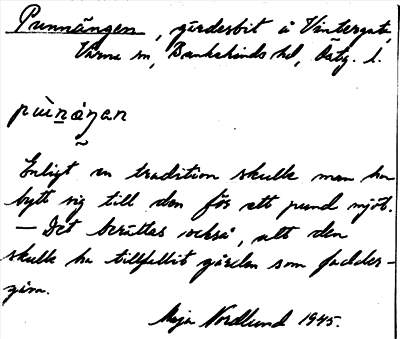 Punnängen, gärdesbit å Vintergata,
Värna sn, Bankekinds hd, Östg. l.
pùn̲áŋan
Enligt en tradition skulle man ha
bytt sig till den för ett pund mjöl.
— Det berättas också, att den
skulle ha tillfallit gården som fadder-
gåva.
Maja Nordlund 1945.